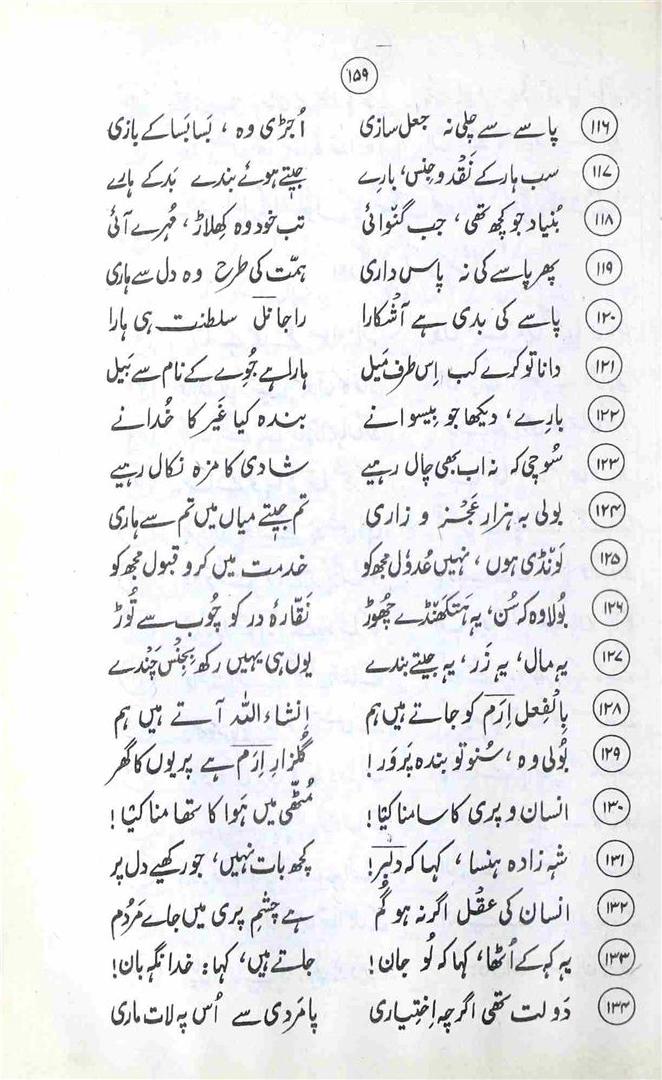 ۱۵۹
۱۱۶ پاسے سے چلی نہ جعل سازی اُجڑی وہ ، بَسا بَسا کے بازی
۱۱۷ سب ہار کے نَقْد و جِنس ، بارے جیتے ہوئے بندے بَد کے ہارے
۱۱۸ بُنیاد جو کچھ تھی ، جب گنوائی تب خود وہ کھلاڑ ، مُہرے آئی
۱۱۹ پھر پاسے کی نہ پاس داری ہمّت کی طرح وہ دل سے ہاری
۱۲۰ پاسے کی بدی ہے آشْکارا راجا نَل سلطنت ہی ہارا
۱۲۱ دانا تو کرے کب اِس طرف مَیل ہارا ہے جُوے کے نام سے بَیل
۱۲۲ بارے ، دیکھا جو بیسوا نے بندہ کیا غَیر کا خُدا نے
۱۲۳ سُوچی کہ نہ اب بھی چال رہیے شادی کا مزہ نکال رہیے
۱۲۴ بولی بہ ہزار عَجْز و زاری تم جیتے میاں میں تم سے ہاری
۱۲۵ لَونْڈی ہوں ، نہیں عُدول مجھ کو خدمت میں کرو قبول مجھ کو
۱۲۶ بُولا وہ کہ سُن ، یہ ہَتکھنڈے چھوڑ نَقّارۂ در کو چُوب سے توڑ
۱۲۷ یہ مال ، یہ زَر ، یہ جیتے بندے یوں ہی یہیں رکھ بجِنْس چَنْدے
۱۲۸ بِالْفِعل اِرَم کو جاتے ہیں ہم اِنشاءاللہ آتے ہیں ہم
۱۲۹ بُولی وہ ، سُنو تو بندہ پَروَر ! گُلزارِ اِرَم ہے پریوں کا گھر
۱۳۰ انسان و پری کا سامنا کیا ! مُٹّھی میں ہَوا کا تھامنا کیا !
۱۳۱ شہ زادہ ہنسا ، کہا کہ دلبر ! کچھ بات نہیں ، جو رکھیے دل پر
۱۳۲ انسان کی عقْل اگر نہ ہو گُم ہے چشمِ پری میں جاے مَردُم
۱۳۳ یہ کہہ کے اُٹھا ، کہا کہ لو جان ! جاتے ہیں ، کہا : خدا نگہ بان !
۱۳۴ دَولت تھی اگرچہ اِخْتیاری پامَردی سے اُس پہ لات ماری